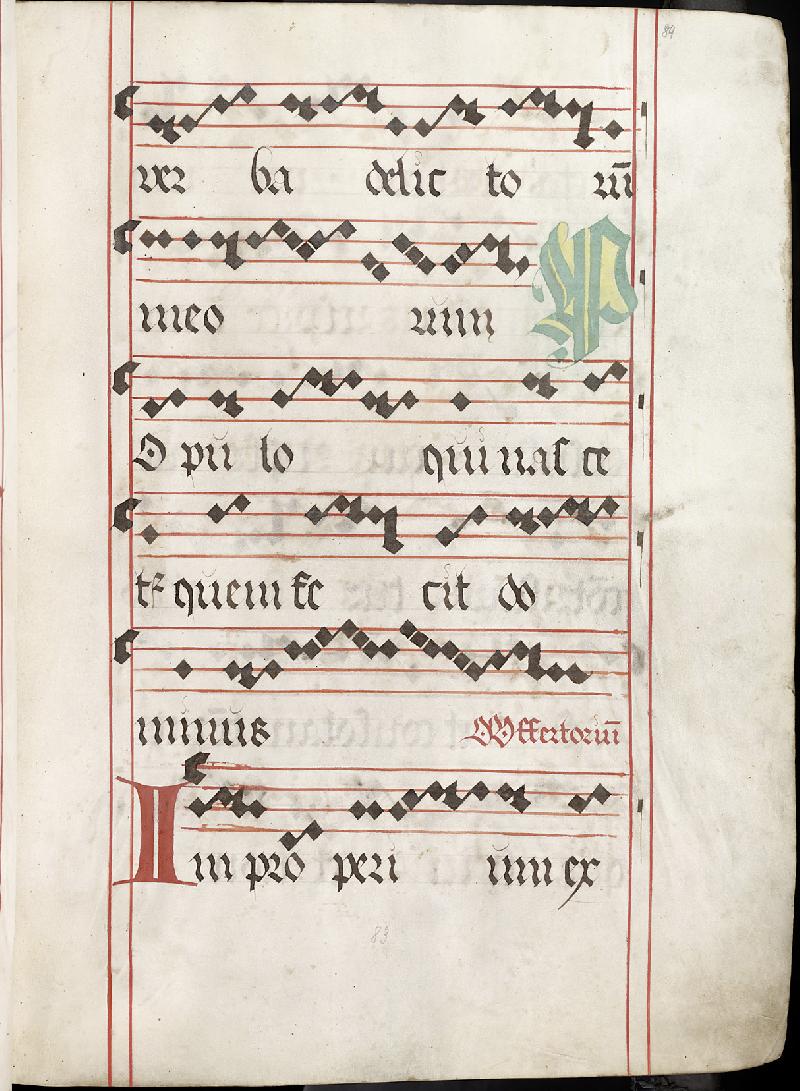 84
ver ba delic to rū
meo rum P
O pu lo qui nas ce
tr quem fe cit do
minus Offertoriū
Im pro peri um ex
83